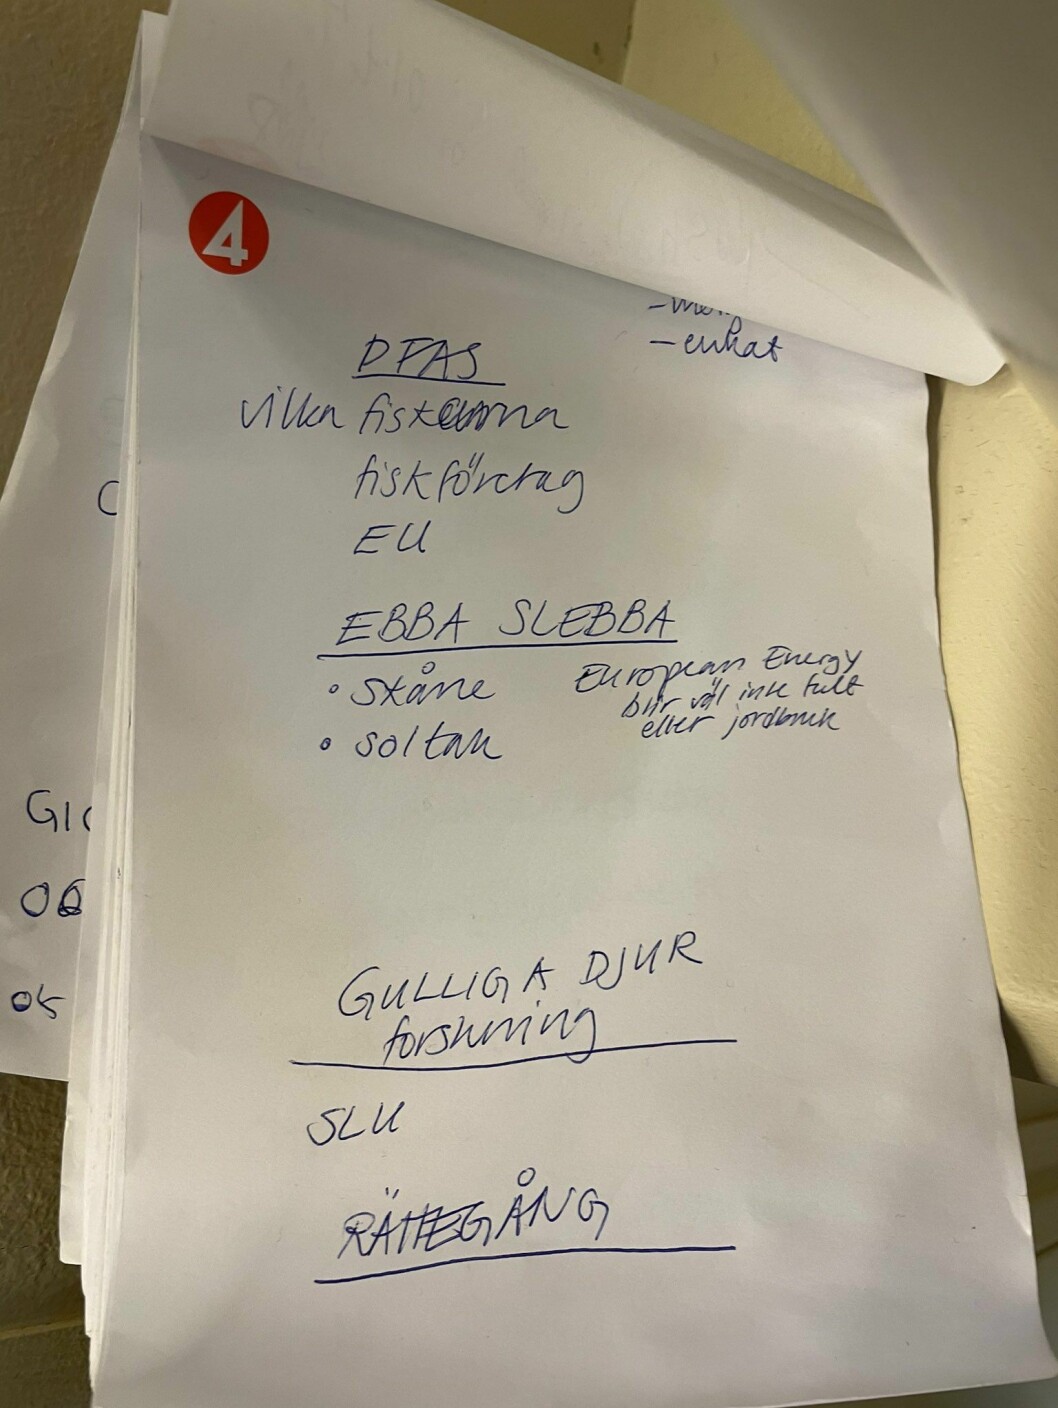 4
- enkät
PFAS
vilka fiskarna
fiskföretag
EU
EBBA SLEBBA
• Skåne
• soltak
European Energy
blir väl inte fult
eller jordbruk
GULLIGA DJUR
forskning
SLU
RÄTTEGÅNG